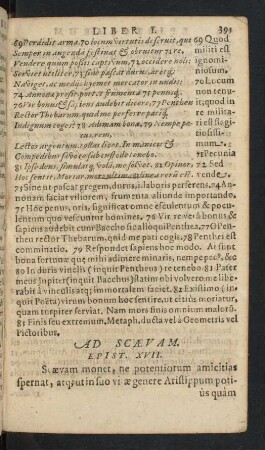 LIBER I. 391
69Perdidit arma, 70 locum virtutis deseruit, qui
Semper in augenda festinat & obruitur 71 re.
Vendere quum possis captivum, 72 occidere noli:
Serviet utiliter, 73 sine pascat durus, aretq;
Naviget, ac mediis hyemet mercator in undis:
74 Annonæ prosit: portet frumenta 75 penusq;
76 Vir bonus & sapiens audebit dicere, 77 Pentheu
Rector Thebarum, quid me perferre patiq;
Indignum coges? 78 Adimam bona. 79 Nempe pe-
cus, rem,
Lectos argentum. tollas licet. In manicis &
Compedibus sævo te sub custode tenebo.
81 Ipse Deus, simulatq; volā, me solvet. Opinor,
Hoc sentit, Moriar. mors ultima linea rerū est.
69 Quod
militi est
ignomi-
niosum.
70 Locum
non tenu-
re militi
est flagi-
tiosissi-
mum.
71 Pecunia
72 Sed
73 Sine ut pascat gregem, durus, i. laboris perferens. 74 An-
nonam, faciat viliorem, frumenta aliunde importando.
75 Hoc penus, oris, significat omne esculentum & po-
culentum quo vescuntur homines. 76 Vir revera bonus &
sapiens audebit cum Baccho si calloqui Penthea, 77 ô Pen-
theu rector Thebarum, quid me pati cogis. 78 Penthei est
comminatio. 79 Respondet sapiens hoc modo. At sunt
bona fortunæ quæ mihi adimere minaris, nempe pec9, &c
80 In duris vinclis (inquit Pentheus) te tenebo 81 Pater
meus Jupiter (inquit Bacchus) statim ubi volvero me libe-
rabit à vinculis, id enim est illi facere facient. 82 Existimo (in-
quit Poëta) virum bonum hoc sentire, ut citius moriatur,
quam turpiter serviat. Nam mors finis omnium malorū
81 Finis seu extremum. Metaph. ducta vel à Geometris vel
Pictoribus.
AD SCÆVAM.
EPIST. XVII.
Scævam monet, ne potentiorum amicitias
spernat, atq; ut in suo vitæ genere Aristippum poti-
ùs quàm